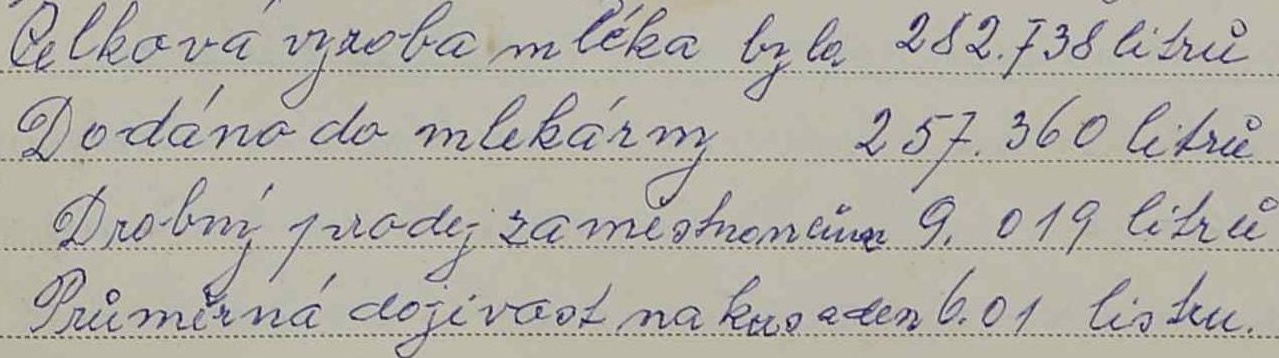 Celková vyroba mléka byla 282.738 litrů
Dodáno do mlekárny 257.360 litrů
Drobný prodej zaměstnoncům 9.019 litrů
Průměrná dojivost na kus a den 6.01 listru.